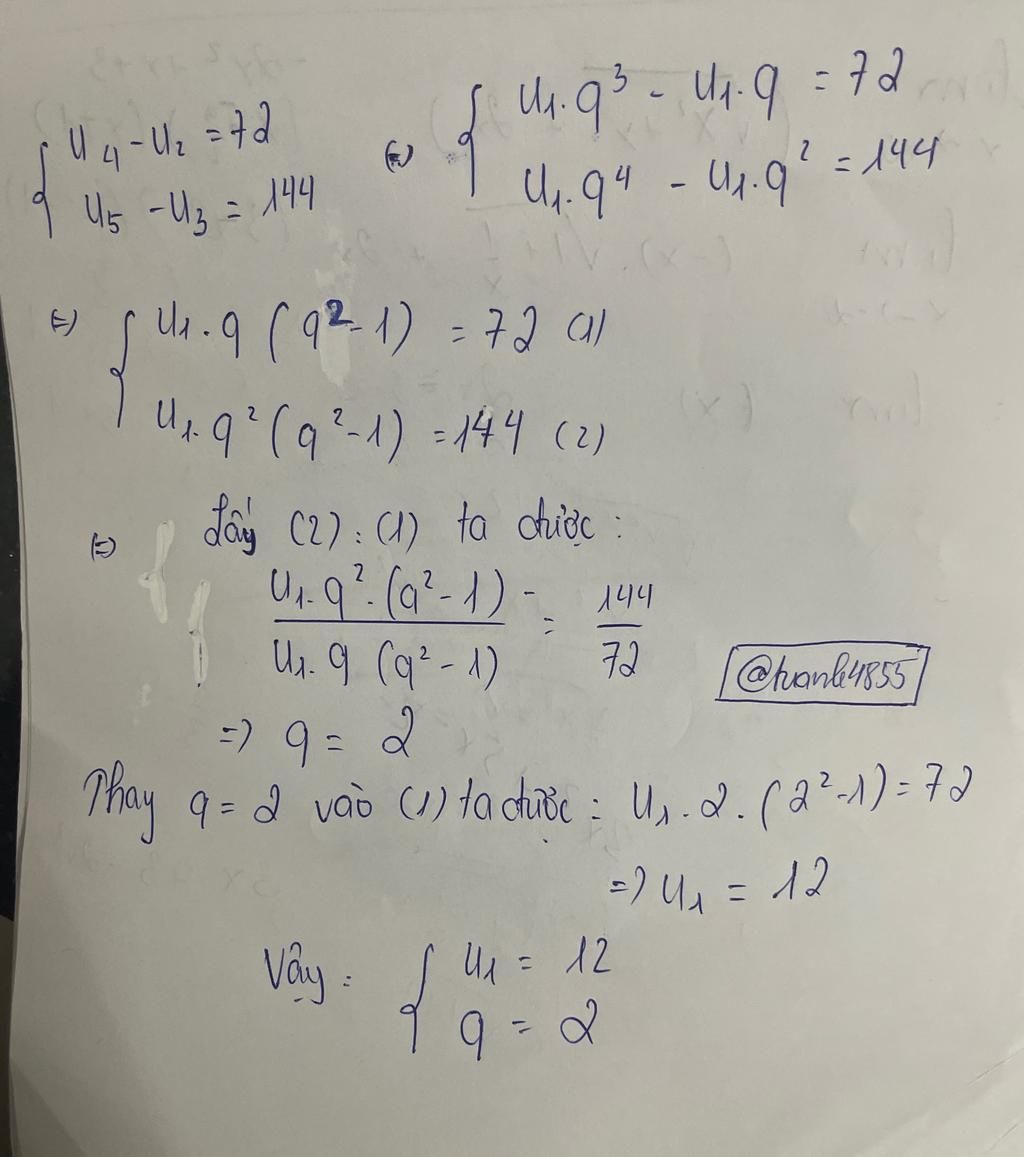 { u₄ - u₂ = 72
u₅ - u₃ = 144
⇔ { u₁.q³ - u₁.q = 72
u₁.q⁴ - u₁.q² = 144
⇔ { u₁.q (q² - 1) = 72 (1)
u₁.q² (q² - 1) = 144 (2)
⇔ Lấy (2) : (1) ta được :
u₁.q².(q² - 1) / u₁.q (q² - 1) = 144 / 72
⇒ q = 2
Thay q = 2 vào (1) ta được : u₁.2.(2² - 1) = 72
⇒ u₁ = 12
Vậy : { u₁ = 12
q = 2